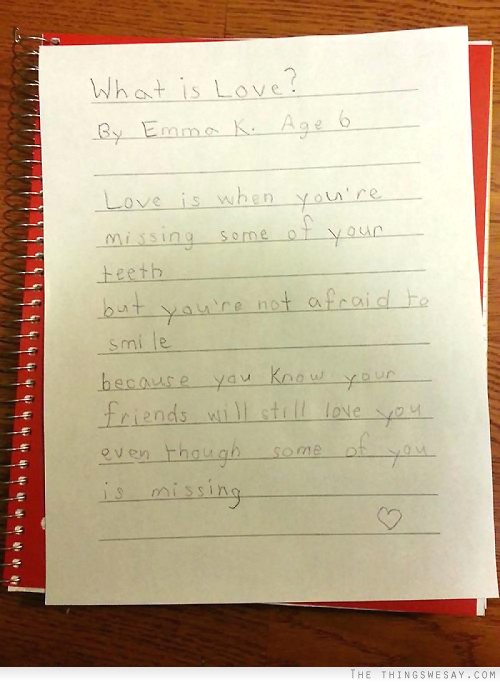 What is Love?
By Emma K. Age 6
Love is when you're
missing some of your
teeth
but you're not afraid to
smile
because you know your
friends will still love you
even though some of you
is missing
THE THINGSWESAY.COM